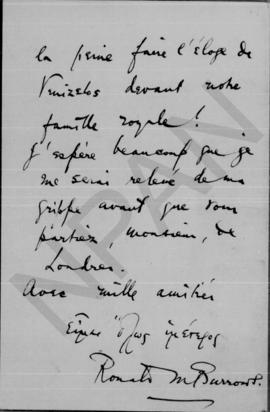 la peine faire l'éloge de
Venizelos devant notre
famille royale!
J'espère beaucoup que je
me serai relevé de ma
grippe avant que vous
partiez, monsieur, de
Londres.
Avec mille amitiés
Εἶμαι ὅλως ὑμέτερος
Ronald M Burrows.